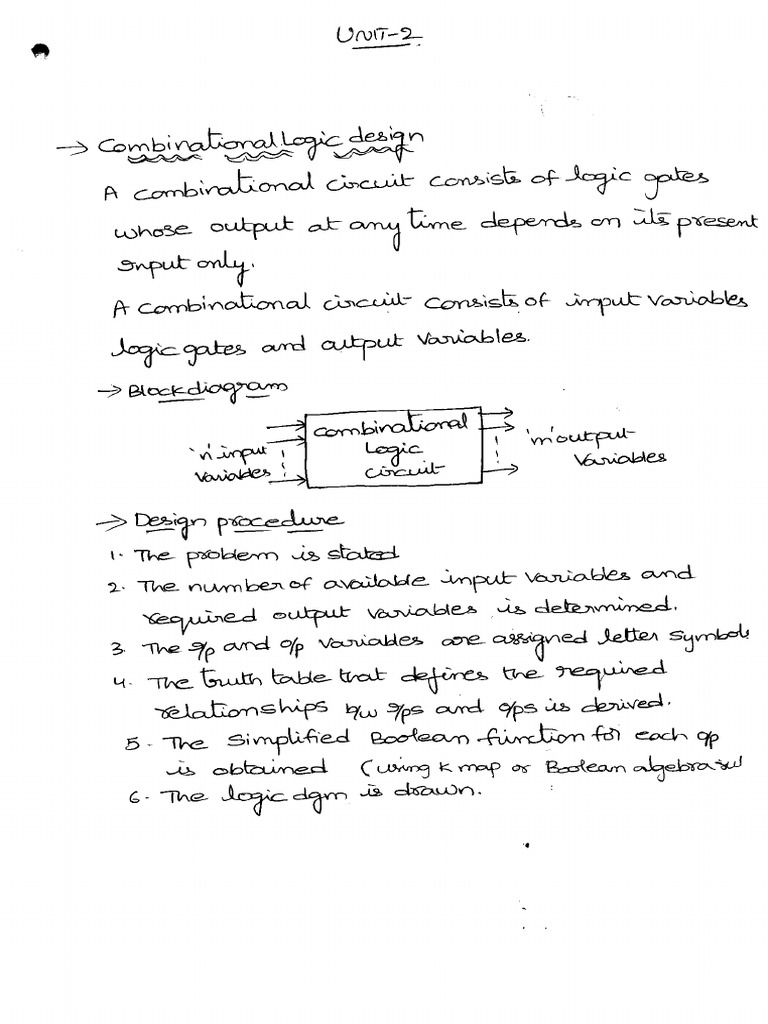 UNIT-2
→ Combinational Logic design
A combinational circuit consists of logic gates
whose output at any time depends on its present
input only.
A combinational circuit consists of input variables
logic gates and output variables.
→ Block diagram
combinational
Logic
circuit
'n' input
variables
'm' output
variables
→ Design procedure
1. The problem is stated
2. The number of available input variables and
required output variables is determined.
3. The I/p and o/p variables are assigned letter symbols
4. The truth table that defines the required
relationships b/w I/ps and o/ps is derived.
5. The simplified Boolean function for each o/p
is obtained (using K map or Boolean algebra
6. The logic dgm is drawn.